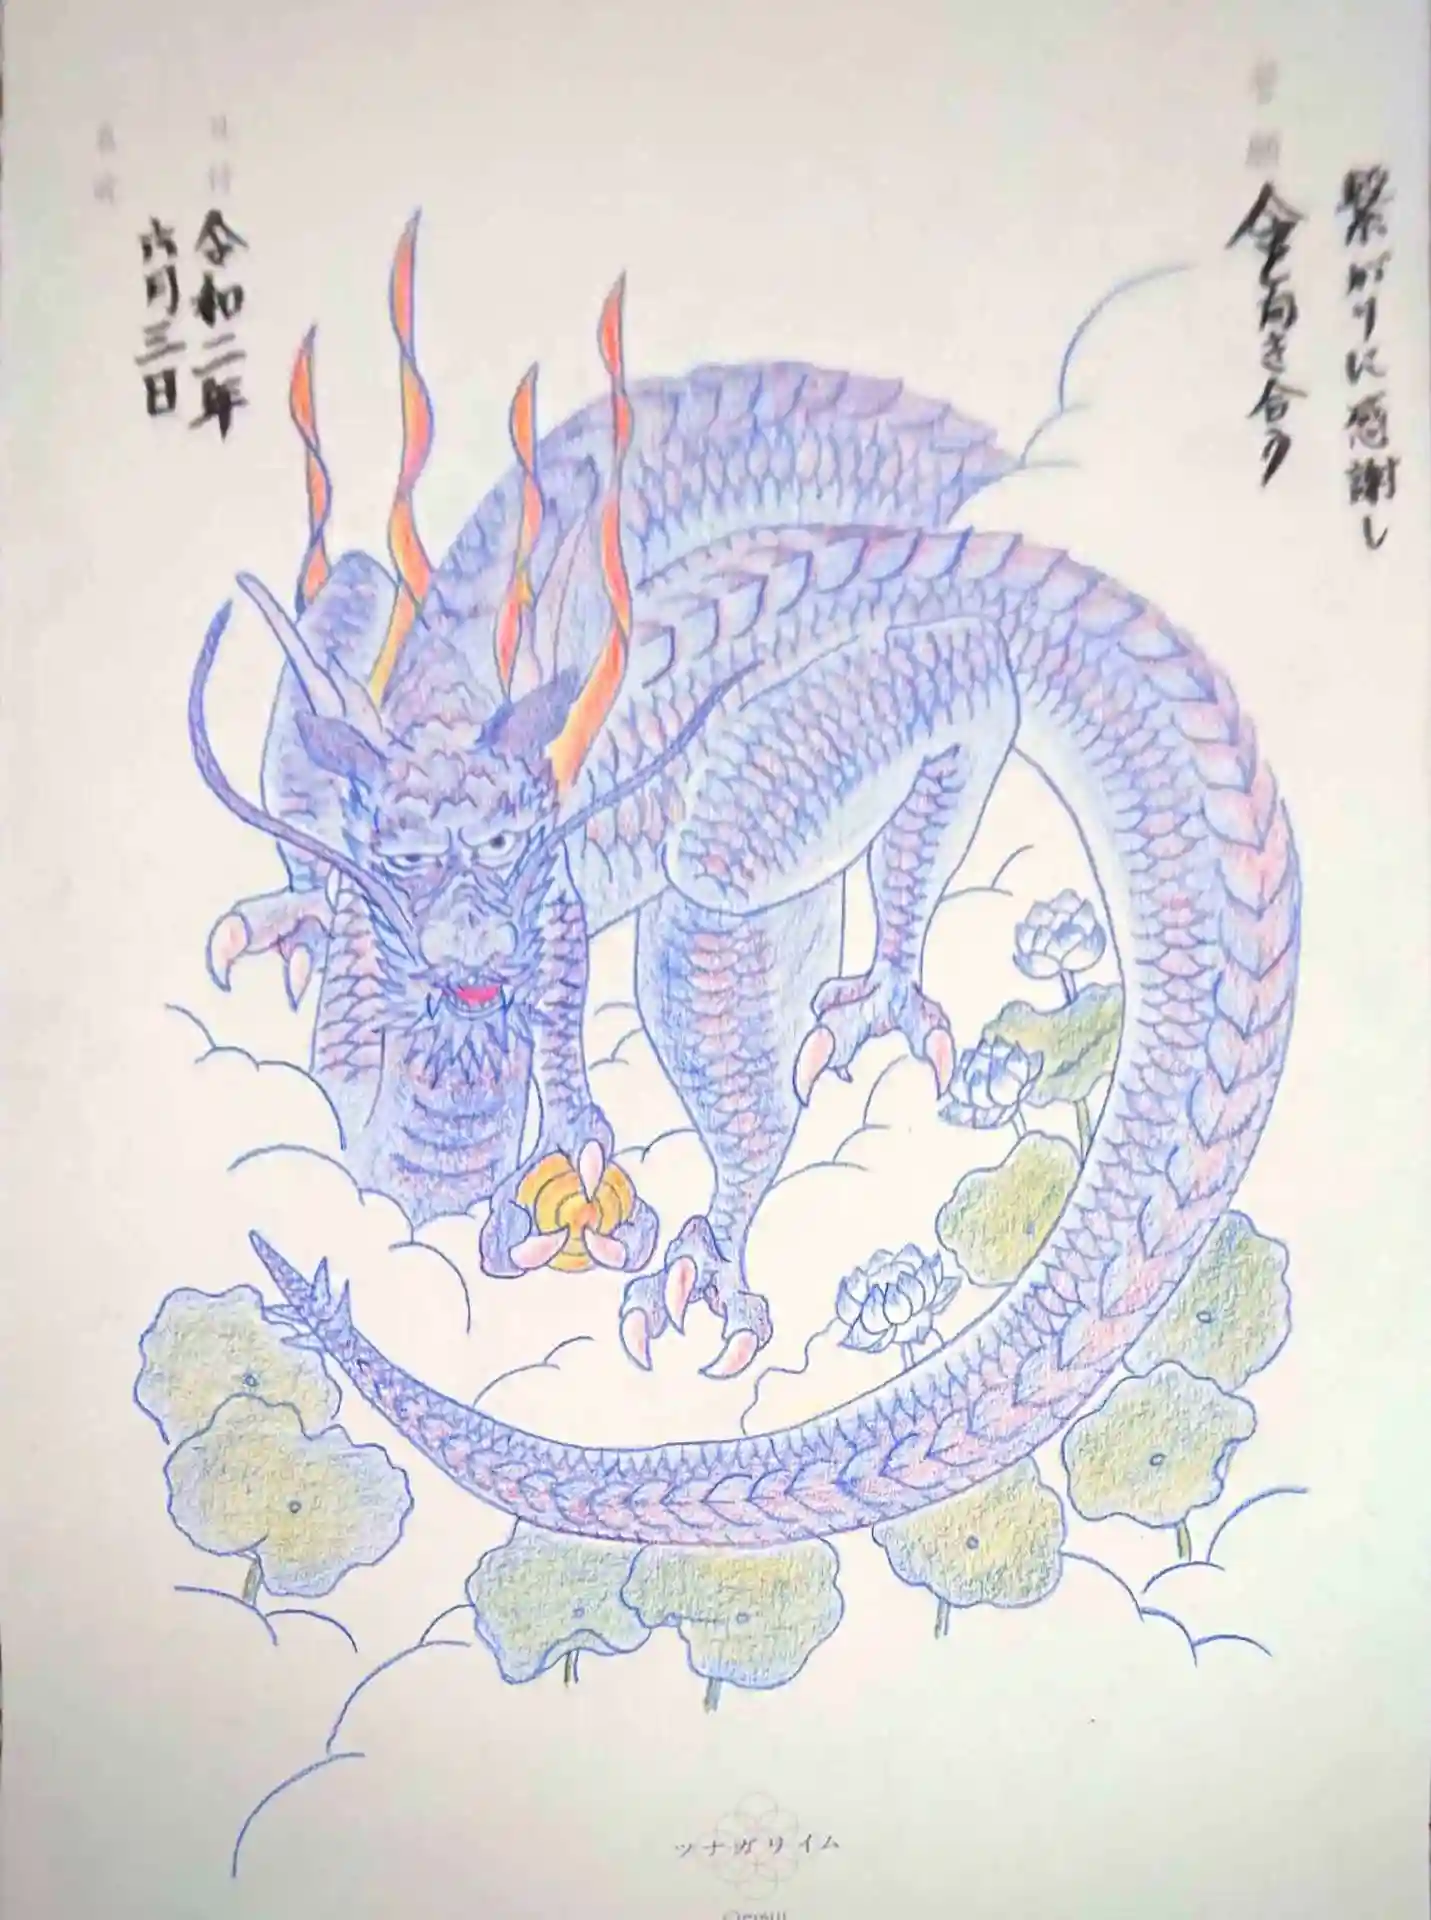 繋がりに感謝し
全向き合う
日付
令和二年
六月三日
ツナガリイム